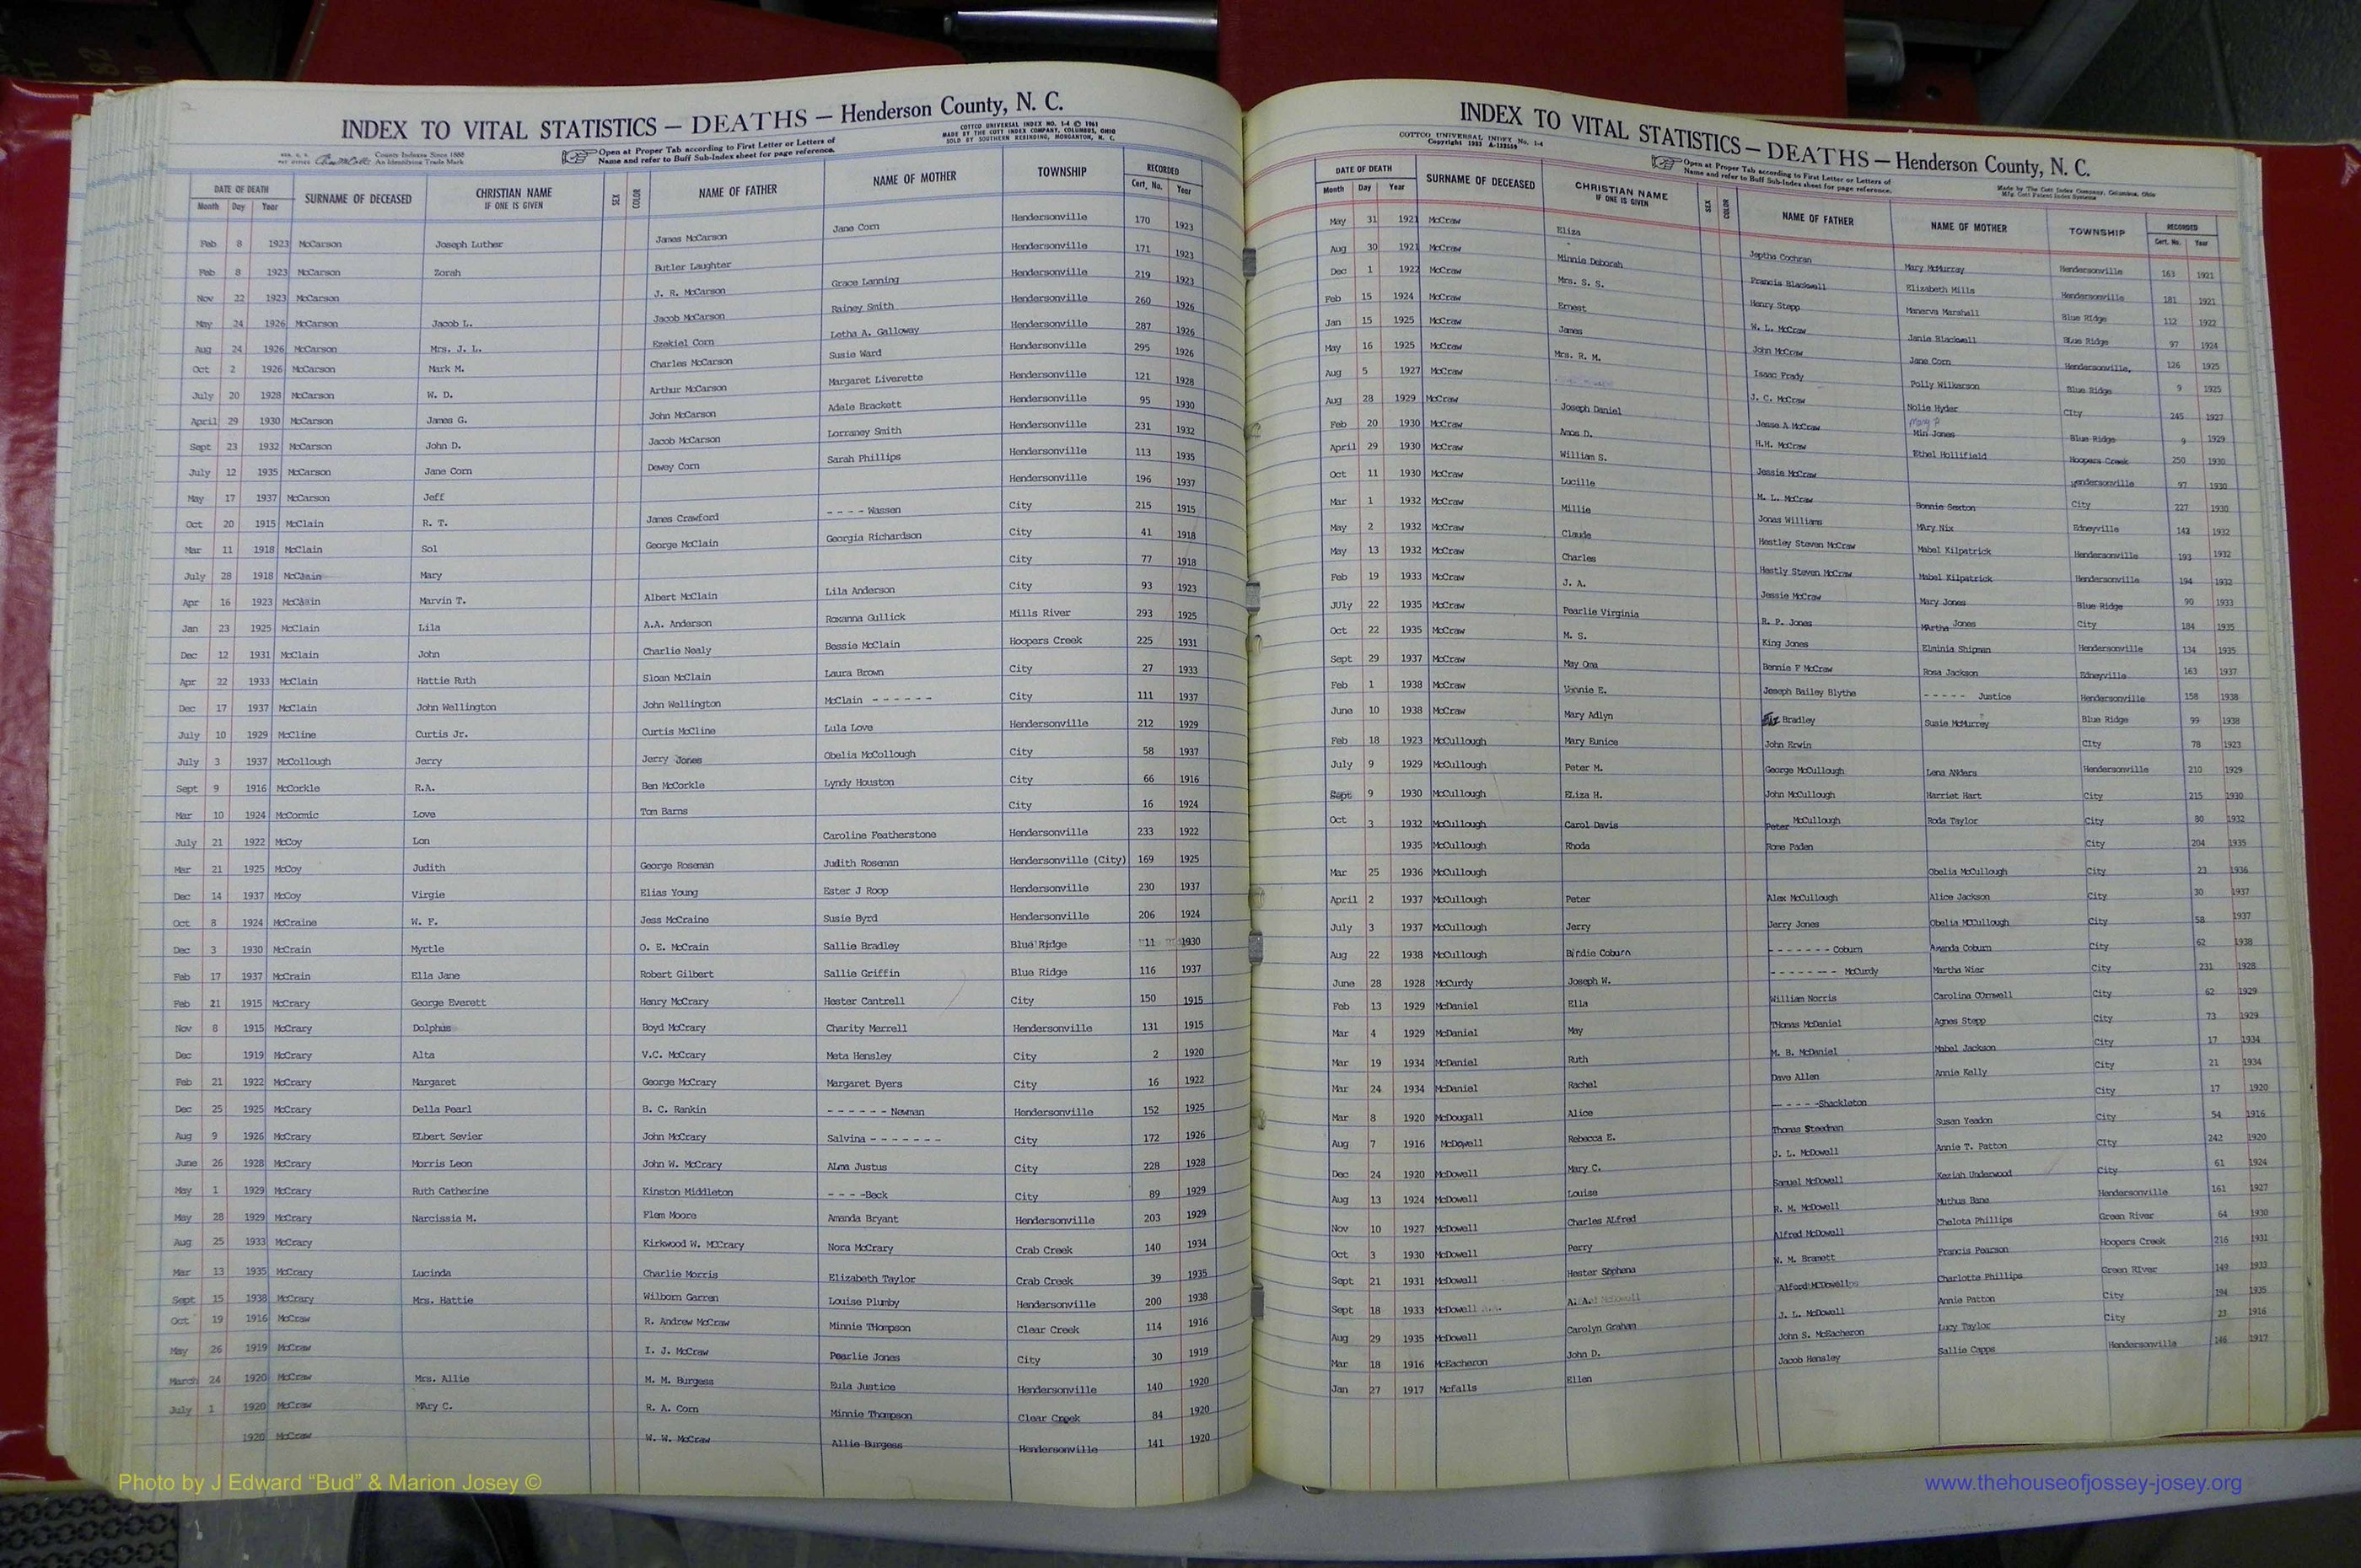 INDEX TO VITAL STATISTICS — DEATHS — Henderson County, N. C.
COTTCO UNIVERSAL INDEX NO. 1-4 © 1961
MADE BY THE COTT INDEX COMPANY, COLUMBUS, OHIO
SOLD BY SOUTHERN REBINDING, MORGANTON, N. C.
County Indexes Since 1888
An Identifying Trade Mark
Open at Proper Tab according to First Letter or Letters of
Name and refer to Buff Sub-Index sheet for page reference.
DATE OF DEATH SURNAME OF DECEASED CHRISTIAN NAME IF ONE IS GIVEN SEX COLOR NAME OF FATHER NAME OF MOTHER TOWNSHIP RECORDED
Month Day Year Cert. No. Year
Feb 8 1923 McCarson Joseph Luther James McCarson Jane Corn Hendersonville 170 1923
Feb 8 1923 McCarson Zorah Butler Laughter Hendersonville 171 1923
Nov 22 1923 McCarson J. R. McCarson Grace Lanning Hendersonville 219 1923
May 24 1926 McCarson Jacob L. Jacob McCarson Rainey Smith Hendersonville 260 1926
Aug 24 1926 McCarson Mrs. J. L. Ezekiel Corn Letha A. Galloway Hendersonville 287 1926
Oct 2 1926 McCarson Mark M. Charles McCarson Susie Ward Hendersonville 295 1926
July 20 1928 McCarson W. D. Arthur McCarson Margaret Liverette Hendersonville 121 1928
April 29 1930 McCarson James G. John McCarson Adale Brackett Hendersonville 95 1930
Sept 23 1932 McCarson John D. Jacob McCarson Lorraney Smith Hendersonville 231 1932
July 12 1935 McCarson Jane Corn Dewey Corn Sarah Phillips Hendersonville 113 1935
May 17 1937 McCarson Jeff Hendersonville 196 1937
Oct 20 1915 McClain R. T. James Crawford - - - - Wassen City 215 1915
Mar 11 1918 McClain Sol George McClain Georgia Richardson City 41 1918
July 28 1918 McClain Mary City 77 1918
Apr 16 1923 McClain Marvin T. Albert McClain Lila Anderson City 93 1923
Jan 23 1925 McClain Lila A.A. Anderson Roxanna Gullick Mills River 293 1925
Dec 12 1931 McClain John Charlie Nealy Bessie McClain Hoopers Creek 225 1931
Apr 22 1933 McClain Hattie Ruth Sloan McClain Laura Brown City 27 1933
Dec 17 1937 McClain John Wellington John Wellington McClain - - - - - - City 111 1937
July 10 1929 McCline Curtis Jr. Curtis McCline Lula Love Hendersonville 212 1929
July 3 1937 McCollough Jerry Jerry Jones Obelia McCollough City 58 1937
Sept 9 1916 McCorkle R.A. Ben McCorkle Lyndy Houston City 66 1916
Mar 10 1924 McCormic Love Tom Barns City 16 1924
July 21 1922 McCoy Lon Caroline Featherstone Hendersonville 233 1922
Mar 21 1925 McCoy Judith George Roseman Judith Roseman Hendersonville (City) 169 1925
Dec 14 1937 McCoy Virgie Elias Young Ester J Roop Hendersonville 230 1937
Oct 8 1924 McCraine W. F. Jess McCraine Susie Byrd Hendersonville 206 1924
Dec 3 1930 McCrain Myrtle O. E. McCrain Sallie Bradley Blue Ridge 11 1930
Feb 17 1937 McCrain Ella Jane Robert Gilbert Sallie Griffin Blue Ridge 116 1937
Feb 21 1915 McCrary George Everett Henry McCrary Hester Cantrell City 150 1915
Nov 8 1915 McCrary Dolphus Boyd McCrary Charity Marrell Hendersonville 131 1915
Dec 1919 McCrary Alta V.C. McCrary Meta Hensley City 2 1920
Feb 21 1922 McCrary Margaret George McCrary Margaret Byers City 16 1922
Dec 25 1925 McCrary Della Pearl B. C. Rankin - - - - - - Newman Hendersonville 152 1925
Aug 9 1926 McCrary ELbert Sevier John McCrary Salvina - - - - - - - City 172 1926
June 26 1928 McCrary Morris Leon John W. McCrary ALma Justus City 228 1928
May 1 1929 McCrary Ruth Catherine Kinston Middleton - - - -Beck City 89 1929
May 28 1929 McCrary Narcissia M. Flem Moore Amanda Bryant Hendersonville 203 1929
Aug 25 1933 McCrary Kirkwood W. MCCrary Nora McCrary Crab Creek 140 1934
Mar 13 1935 McCrary Lucinda Charlie Morris Elizabeth Taylor Crab Creek 39 1935
Sept 15 1938 McCrary Mrs. Hattie Wilborn Garren Louise Plumby Hendersonville 200 1938
Oct 19 1916 McCraw R. Andrew McCraw Minnie THompson Clear Creek 114 1916
May 26 1919 McCraw I. J. McCraw Pearlie Jones City 30 1919
March 24 1920 McCraw Mrs. Allie M. M. Burgess Eula Justice Hendersonville 140 1920
July 1 1920 McCraw MAry C. R. A. Corn Minnie Thompson Clear Creek 84 1920
1920 McCraw W. W. McCraw Allie Burgess Hendersonville 141 1920
Photo by J Edward “Bud” & Marion Josey ©
INDEX TO VITAL STATISTICS — DEATHS — Henderson County, N. C.
COTTCO UNIVERSAL INDEX No. 1-4
Open at Proper Tab according to First Letter or Letters of
Name and refer to Buff Sub-Index sheet for page reference.
Made by The Cott Index Company, Columbus, Ohio
DATE OF DEATH SURNAME OF DECEASED CHRISTIAN NAME IF ONE IS GIVEN SEX COLOR NAME OF FATHER NAME OF MOTHER TOWNSHIP RECORDED
Month Day Year Cert. No. Year
May 31 1921 McCraw Eliza Jeptha Cochran Mary McMurray Hendersonville 163 1921
Aug 30 1921 McCraw Minnie Deborah Francis Blackwell Elizabeth Mills Hendersonville 181 1921
Dec 1 1922 McCraw Mrs. S. S. Henry Stepp Manerva Marshall Blue Ridge 112 1922
Feb 15 1924 McCraw Ernest W. L. McCraw Janie Blackwell BLue Ridge 97 1924
Jan 15 1925 McCraw James John McCraw Jane Corn Hendersonville, 126 1925
May 16 1925 McCraw Mrs. R. M. Isaac Frady Polly Wilkerson Blue Ridge 9 1925
Aug 5 1927 McCraw J. C. McCraw Nolie Hyder CIty 245 1927
Aug 28 1929 McCraw Joseph Daniel Jesse A McCraw Min Jones Blue Ridge 9 1929
Feb 20 1930 McCraw Amos D. H.H. McCraw Ethel Hollifield Hoopers Creek 250 1930
April 29 1930 McCraw William S. Jessie McCraw Hendersonville 97 1930
Oct 11 1930 McCraw Lucille M. L. McCraw Bonnie Sexton City 227 1930
Mar 1 1932 McCraw Millie Jonas Williams MAry Nix Edneyville 142 1932
May 2 1932 McCraw Claude Hestley Steven McCraw Mabel Kilpatrick Hendersonville 193 1932
May 13 1932 McCraw Charles Hestly Steven McCraw Mabel Kilpatrick Hendersonville 194 1932
Feb 19 1933 McCraw J. A. Jessie McCraw Mary Jones Blue Ridge 90 1933
JUly 22 1935 McCraw Pearlie Virginia R. P. Jones MArtha Jones City 184 1935
Oct 22 1935 McCraw M. S. King Jones Elminia Shipman Hendersonville 134 1935
Sept 29 1937 McCraw May Oma Bennie F McCraw Rosa Jackson Edneyville 163 1937
Feb 1 1938 McCraw Vonnie E. Joseph Bailey Blythe - - - - - Justice Hendersonville 158 1938
June 10 1938 McCraw Mary Adlyn Bradley Susie McMurrey Blue Ridge 99 1938
Feb 18 1923 McCullough Mary Eunice John Erwin CIty 78 1923
July 9 1929 McCullough Peter M. George McCullough Lena ANders Hendersonville 210 1929
Sept 9 1930 McCullough ELiza H. John McCullough Harriet Hart City 215 1930
Oct 3 1932 McCullough Carol Davis Peter McCullough Roda Taylor City 80 1932
1935 McCullough Rhoda Rome Paden City 204 1935
Mar 25 1936 McCullough Obelia McCullough City 23 1936
April 2 1937 McCullough Peter Alex McCullough Alice Jackson City 30 1937
July 3 1937 McCullough Jerry Jerry Jones Obelia MCCullough City 58 1937
Aug 22 1938 McCullough Birdie Coburn - - - - - - - Coburn Amanda Coburn City 62 1938
June 28 1928 McCurdy Joseph W. - - - - - - - McCurdy Martha Wier City 231 1928
Feb 13 1929 McDaniel Ella William Norris Carolina COrnwell City 62 1929
Mar 4 1929 McDaniel May THomas McDaniel Agnes Stepp City 73 1929
Mar 19 1934 McDaniel Ruth M. B. McDaniel Mabel Jackson City 17 1934
Mar 24 1934 McDaniel Rachel Dave Allen Annie Kelly City 21 1934
Mar 8 1920 McDougall Alice - - - - -Shackleton City 17 1920
Aug 7 1916 McDowell Rebecca E. Thomas Steedman Susan Yeadon City 54 1916
Dec 24 1920 McDowell Mary C. J. L. McDowell Annie T. Patton CIty 242 1920
Aug 13 1924 McDowell Louise Samuel McDowell Keziah Underwood City 61 1924
Nov 10 1927 McDowell Charles ALfred R. M. McDowell Muthus Bane Hendersonville 161 1927
Oct 3 1930 McDowell Perry Alfred McDowell Chelota Phillips Green River 64 1930
Sept 21 1931 McDowell Hester Sephena W. M. Bramett Francis Pearson Hoopers Creek 216 1931
Sept 18 1933 McDowell A. A. Alford McDowell Charlotte Phillips Green RIver 149 1933
Aug 29 1935 McDowell Carolyn Graham J. L. McDowell Annie Patton City 194 1935
Mar 18 1916 McEacheron John D. John S. McEacheron Lucy Taylor City 23 1916
Jan 27 1917 Mcfalls Ellen Jacob Hensley Sallie Capps Hendersonville 146 1917
www.thehouseofjossey-josey.org